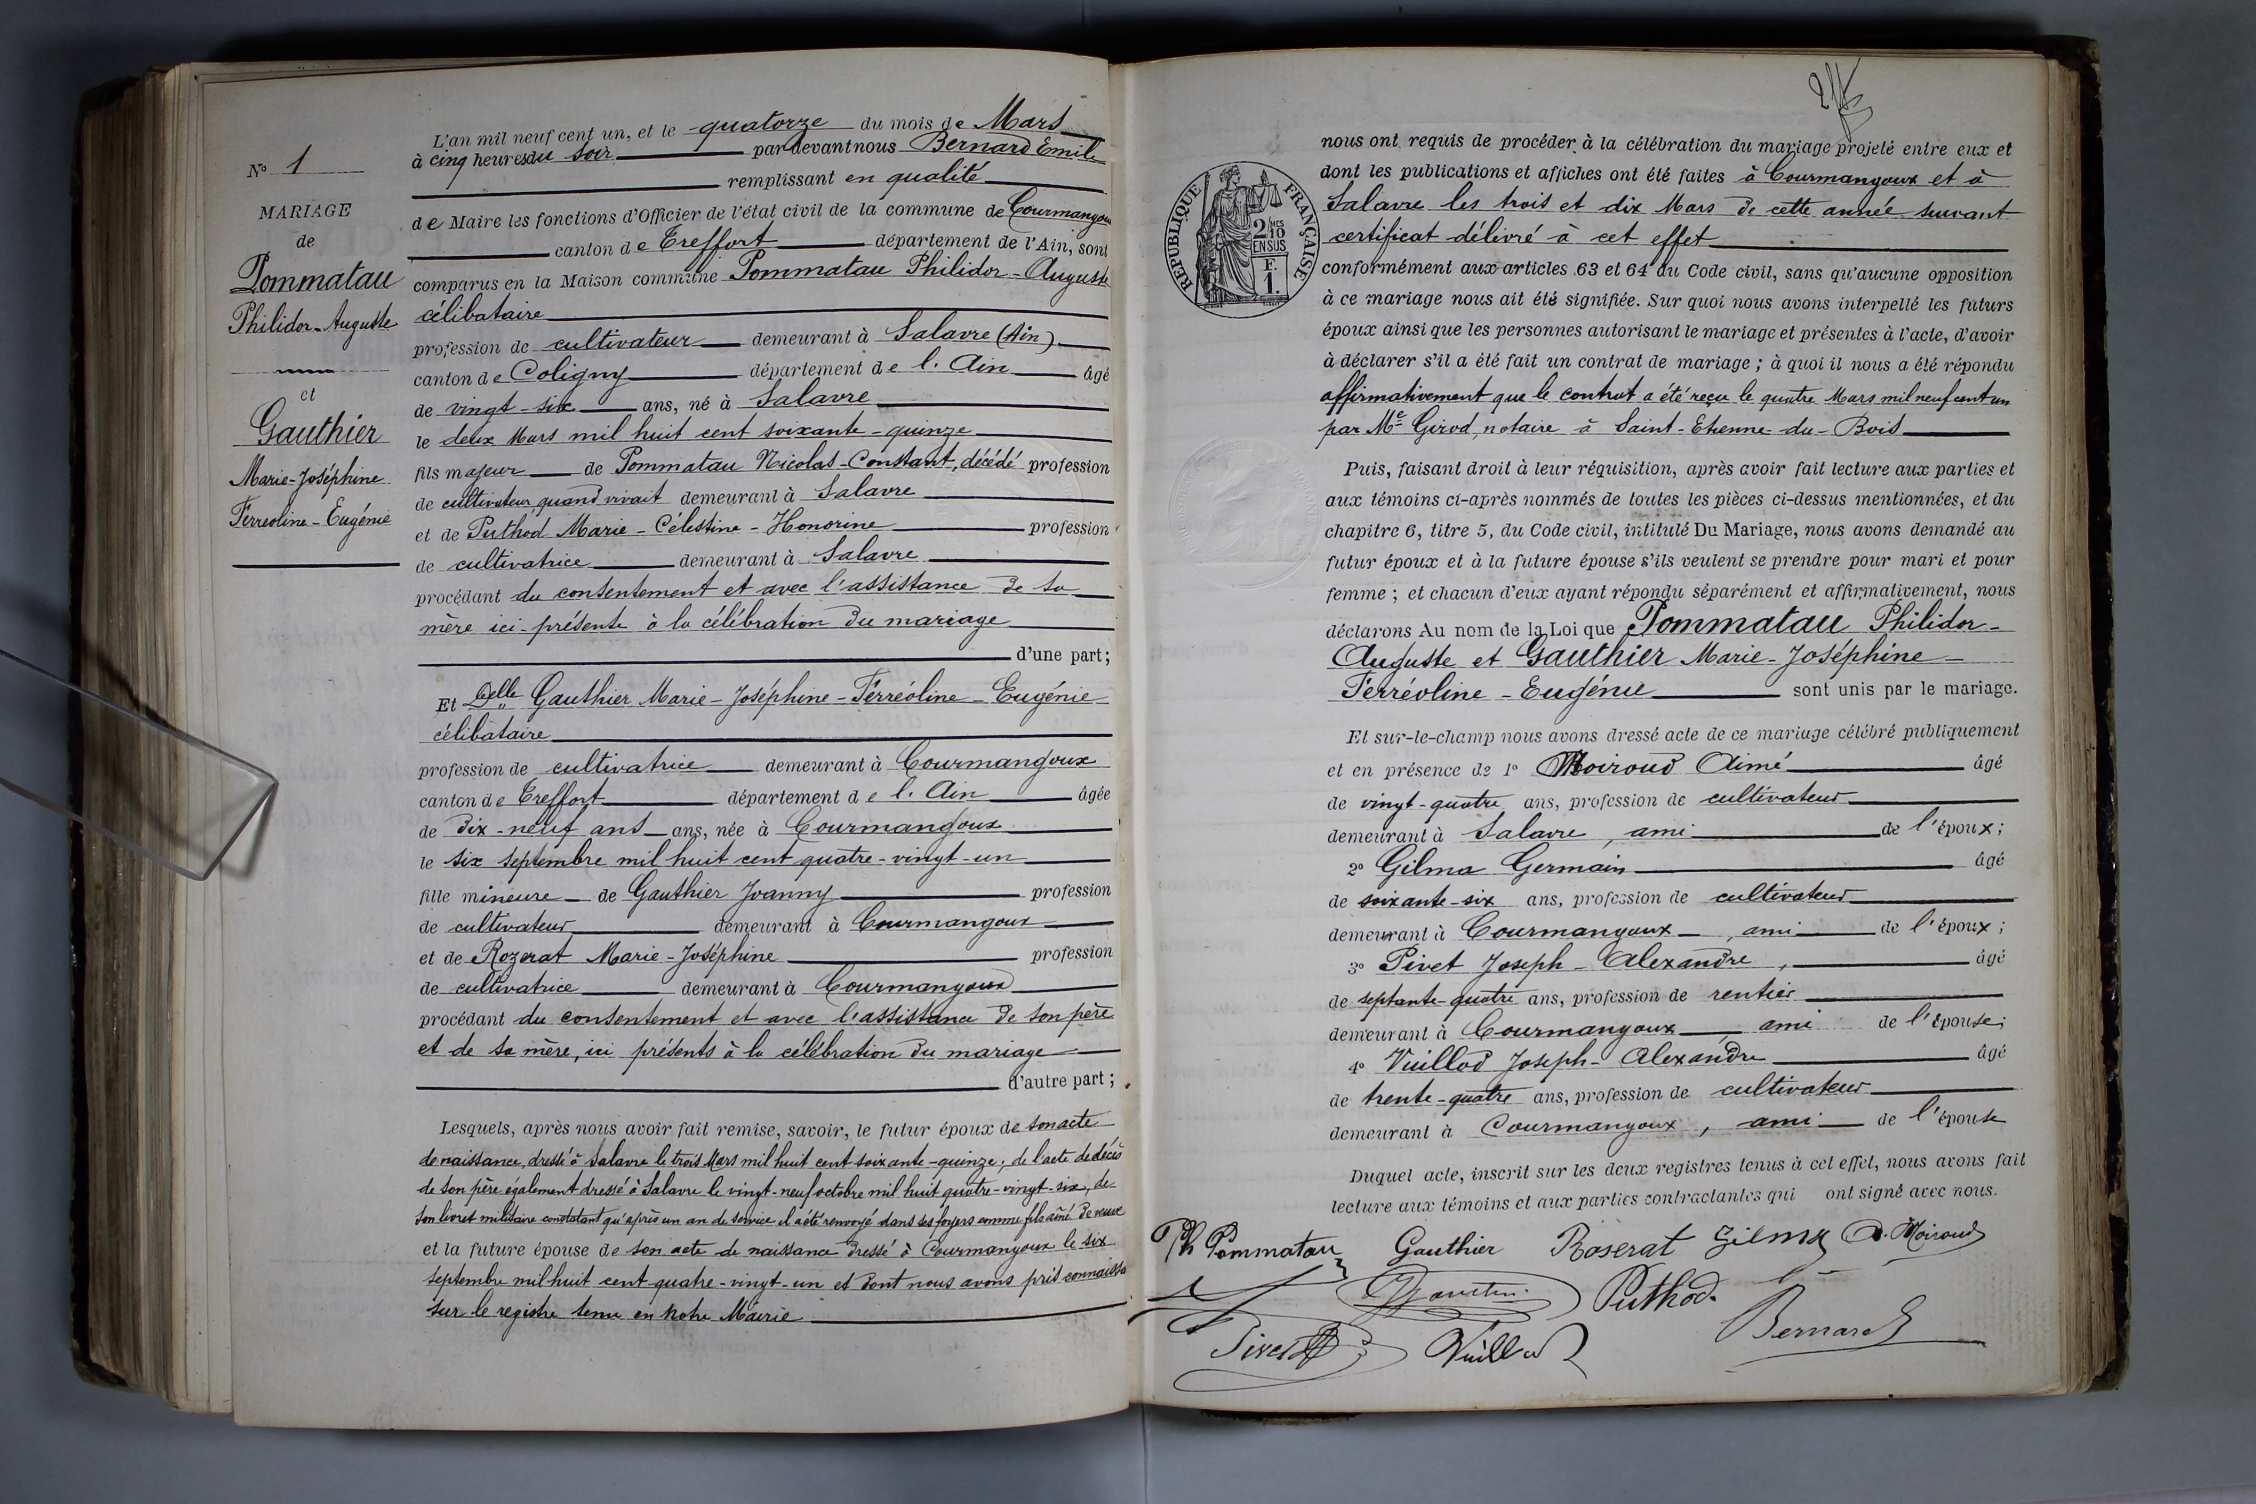 N° 1
MARIAGE
de
Pommatau
Philidor-Auguste
et
Gauthier
Marie-Joséphine
Ferréoline-Eugénie
L'an mil neuf cent un, et le quatorze du mois de Mars
à cinq heures du soir par devant nous Bernard Emile
remplissant en qualité
de Maire les fonctions d'Officier de l'état civil de la commune de Courmangoux
canton de Treffort département de l'Ain, sont
comparus en la Maison commune Pommatau Philidor-Auguste
célibataire
profession de cultivateur demeurant à Salavre (Ain)
canton de Coligny département de l'Ain âgé
de vingt-six ans, né à Salavre
le deux Mars mil huit cent soixante-quinze
fils majeur de Pommatau Nicolas-Constant, décédé profession
de cultivateur quand vivait demeurant à Salavre
et de Puthod Marie-Célestine-Honorine profession
de cultivatrice demeurant à Salavre
procédant du consentement et avec l'assistance de sa
mère ici présente à la célébration du mariage
d'une part;
Et Delle Gauthier Marie-Joséphine-Ferréoline-Eugénie
célibataire
profession de cultivatrice demeurant à Courmangoux
canton de Treffort département de l'Ain âgée
de dix-neuf ans ans, née à Courmangoux
le six septembre mil huit cent quatre-vingt-un
fille mineure de Gauthier Joanny profession
de cultivateur demeurant à Courmangoux
et de Rozerat Marie-Joséphine profession
de cultivatrice demeurant à Courmangoux
procédant du consentement et avec l'assistance de son père
et de sa mère, ici présents à la célébration du mariage
d'autre part;
Lesquels, après nous avoir fait remise, savoir, le futur époux de son acte
de naissance, dressé à Salavre le trois Mars mil huit cent soixante-quinze; de l'acte de décès
de son père également dressé à Salavre le vingt-neuf octobre mil huit quatre-vingt-six, de
son livret militaire constatant qu'après un an de service il a été renvoyé dans ses foyers comme fils aîné de veuve
et la future épouse de son acte de naissance dressé à Courmangoux le six
septembre mil huit cent quatre-vingt-un et dont nous avons pris connaissa
sur le registre tenu en notre Mairie
RÉPUBLIQUE FRANÇAISE
2/10 EN SUS
F. 1.
nous ont requis de procéder à la célébration du mariage projeté entre eux et
dont les publications et affiches ont été faites à Courmangoux et à
Salavre les trois et dix Mars de cette année suivant
certificat délivré à cet effet
conformément aux articles 63 et 64 du Code civil, sans qu'aucune opposition
à ce mariage nous ait été signifiée. Sur quoi nous avons interpellé les futurs
époux ainsi que les personnes autorisant le mariage et présentes à l'acte, d'avoir
à déclarer s'il a été fait un contrat de mariage; à quoi il nous a été répondu
affirmativement que le contrat a été reçu le quatre Mars mil neuf cent un
par Me Girod, notaire à Saint-Etienne-du-Bois
Puis, faisant droit à leur réquisition, après avoir fait lecture aux parties et
aux témoins ci-après nommés de toutes les pièces ci-dessus mentionnées, et du
chapitre 6, titre 5, du Code civil, intitulé Du Mariage, nous avons demandé au
futur époux et à la future épouse s'ils veulent se prendre pour mari et pour
femme; et chacun d'eux ayant répondu séparément et affirmativement, nous
déclarons Au nom de la Loi que Pommatau Philidor-
Auguste et Gauthier Marie-Joséphine-
Ferréoline-Eugénie sont unis par le mariage.
Et sur-le-champ nous avons dressé acte de ce mariage célébré publiquement
et en présence de 1° Moiroud Aimé âgé
de vingt-quatre ans, profession de cultivateur
demeurant à Salavre, ami de l'époux;
2° Gilma Germain âgé
de soixante-six ans, profession de cultivateur
demeurant à Courmangoux, ami de l'époux;
3° Pivet Joseph-Alexandre, âgé
de septante-quatre ans, profession de rentier
demeurant à Courmangoux ami de l'épouse;
4° Vuillod Joseph-Alexandre âgé
de trente-quatre ans, profession de cultivateur
demeurant à Courmangoux, ami de l'épouse
Duquel acte, inscrit sur les deux registres tenus à cet effet, nous avons fait
lecture aux témoins et aux parties contractantes qui ont signé avec nous.
Ph Pommatau Gauthier Roserat Gilma A. Moiroud
Puthod.
Pivet Vuillod Bernard